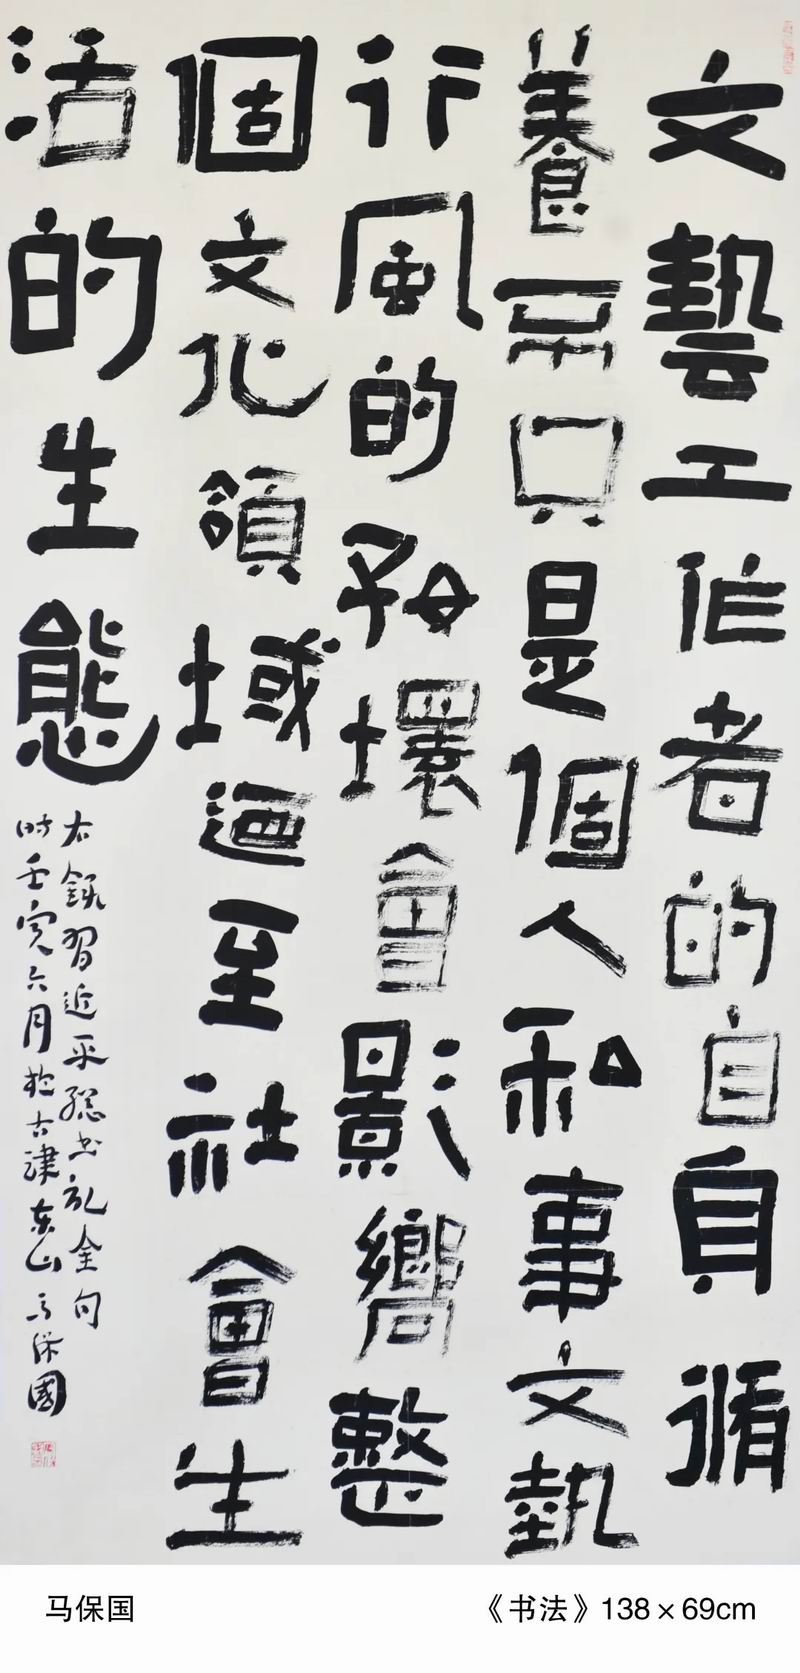 文藝工作者的自身脩
養不只是個人私事文埶
行風的好壞會影嚮整
個文化領域迺至社會生
活的生態
右錄習近平總书記金句
时壬寅六月於古津东山马保國
马保国
《书法》138×69cm